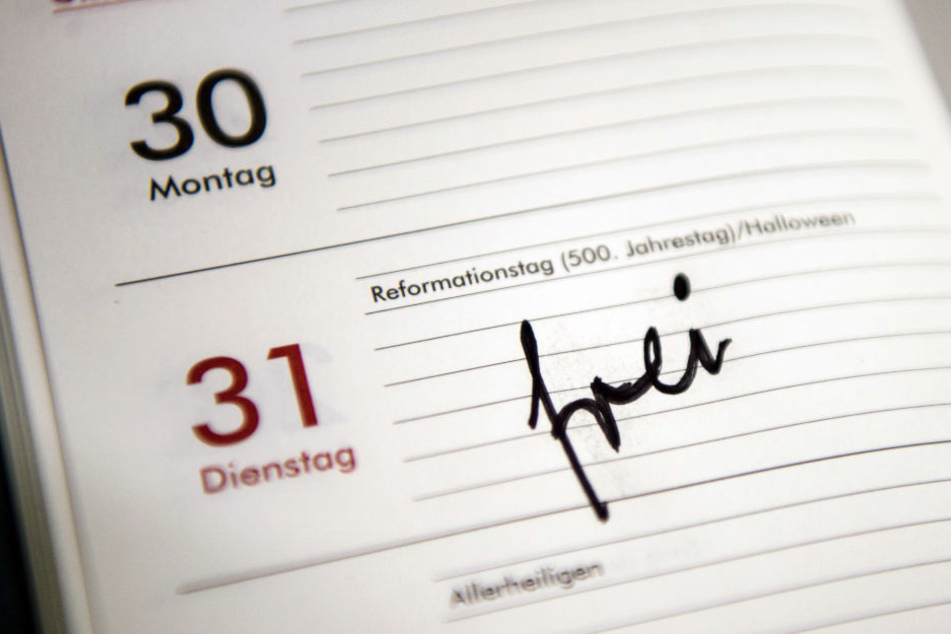 30
Montag
Reformationstag (500. Jahrestag)/Halloween
31
Dienstag
frei
Allerheiligen